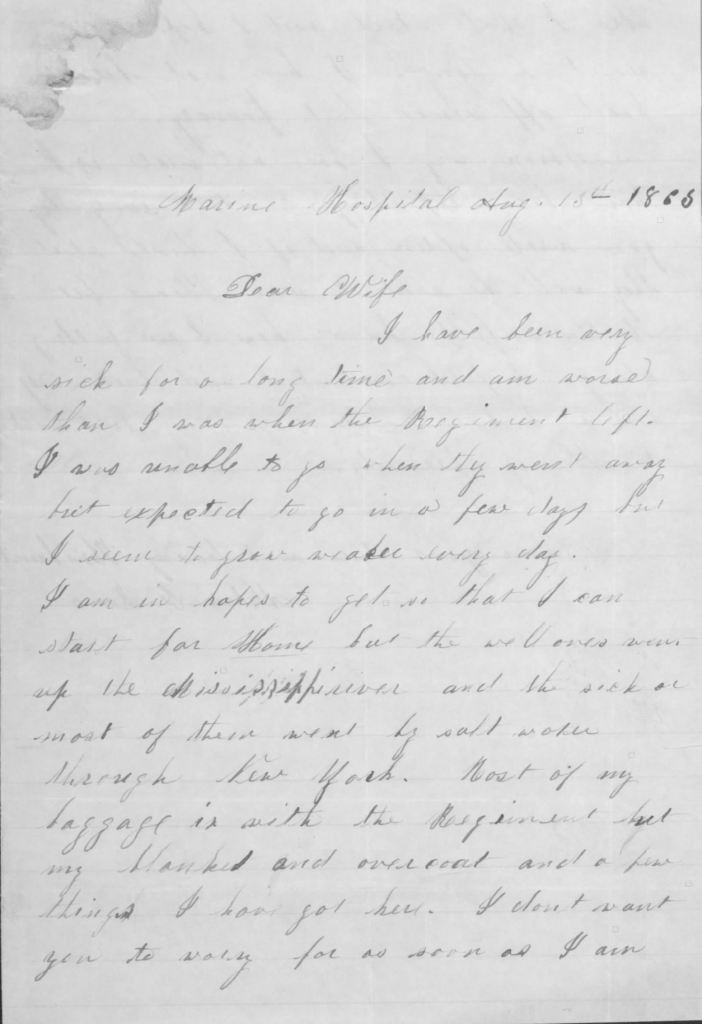 Marine Hospital Aug. 13th 1863
Dear Wife
I have been very
sick for a long time and am worse
than I was when the Regiment left.
I was unable to go when they went away
but expected to go in a few days but
I seem to grow weaker every day.
I am in hopes to get so that I can
start for Home but the well ones went
up the Mississippi river and the sick or
most of them went by salt water
through New York. Most of my
baggage is with the Regiment but
my blanket and overcoat and a few
things I have got here. I dont want
you to worry for as soon as I am